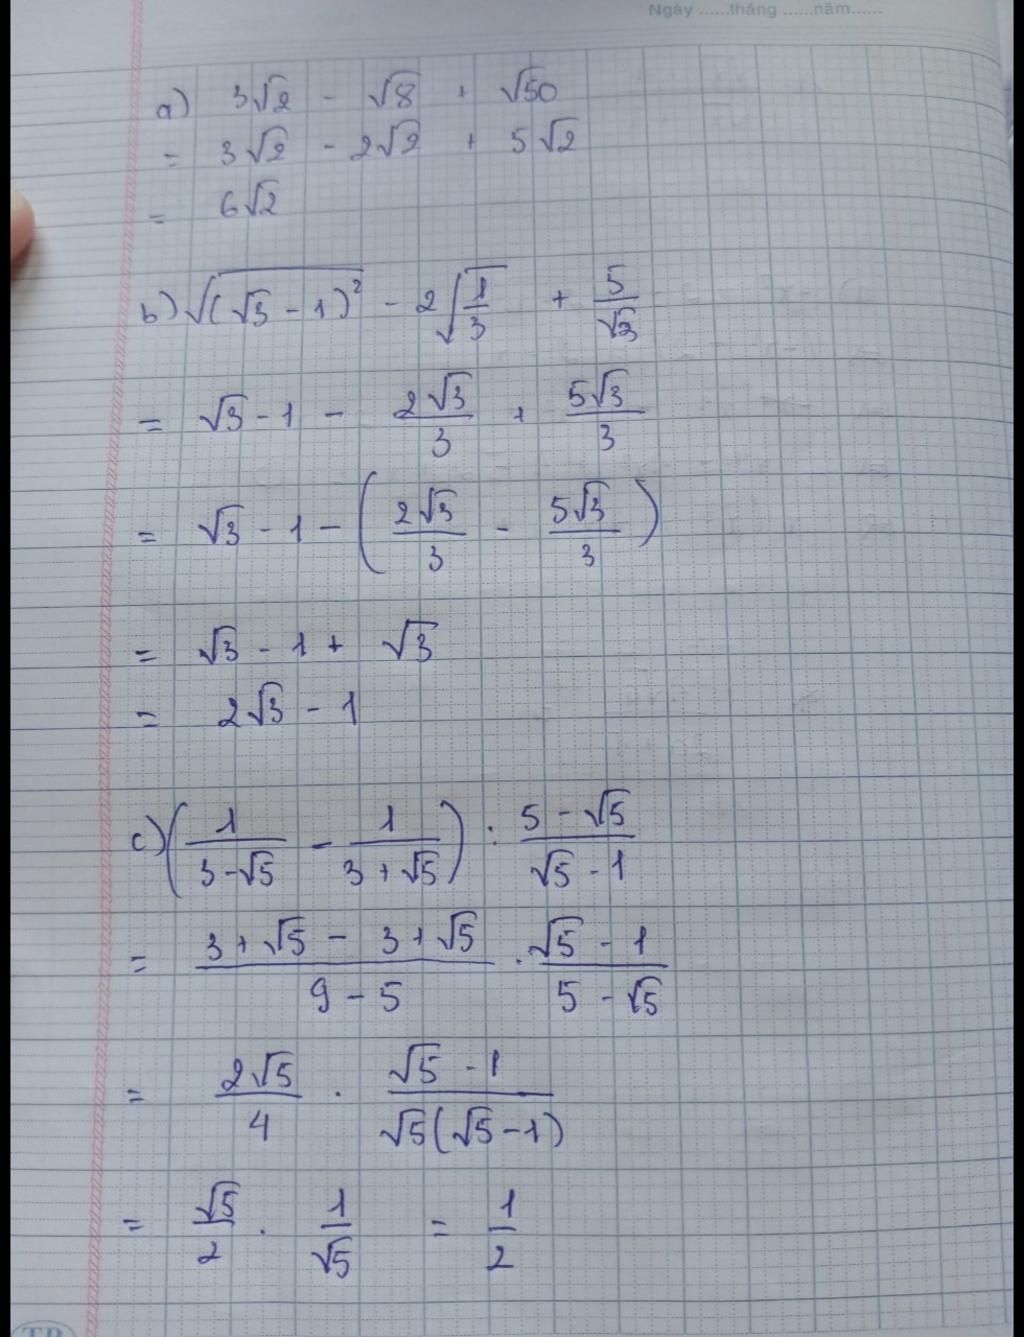 Ngày ......tháng ......năm......
a) 3√2 - √8 + √50
= 3√2 - 2√2 + 5√2
= 6√2
b) √((√3 - 1)²) - 2√(1/3) + 5/√3
= √3 - 1 - 2√3/3 + 5√3/3
= √3 - 1 - (2√3/3 - 5√3/3)
= √3 - 1 + √3
= 2√3 - 1
c) (1/(3-√5) - 1/(3+√5)) : (5-√5)/(√5-1)
= (3+√5 - 3+√5)/(9-5) . (√5-1)/(5-√5)
= 2√5/4 . (√5-1)/(√5(√5-1))
= √5/2 . 1/√5 = 1/2